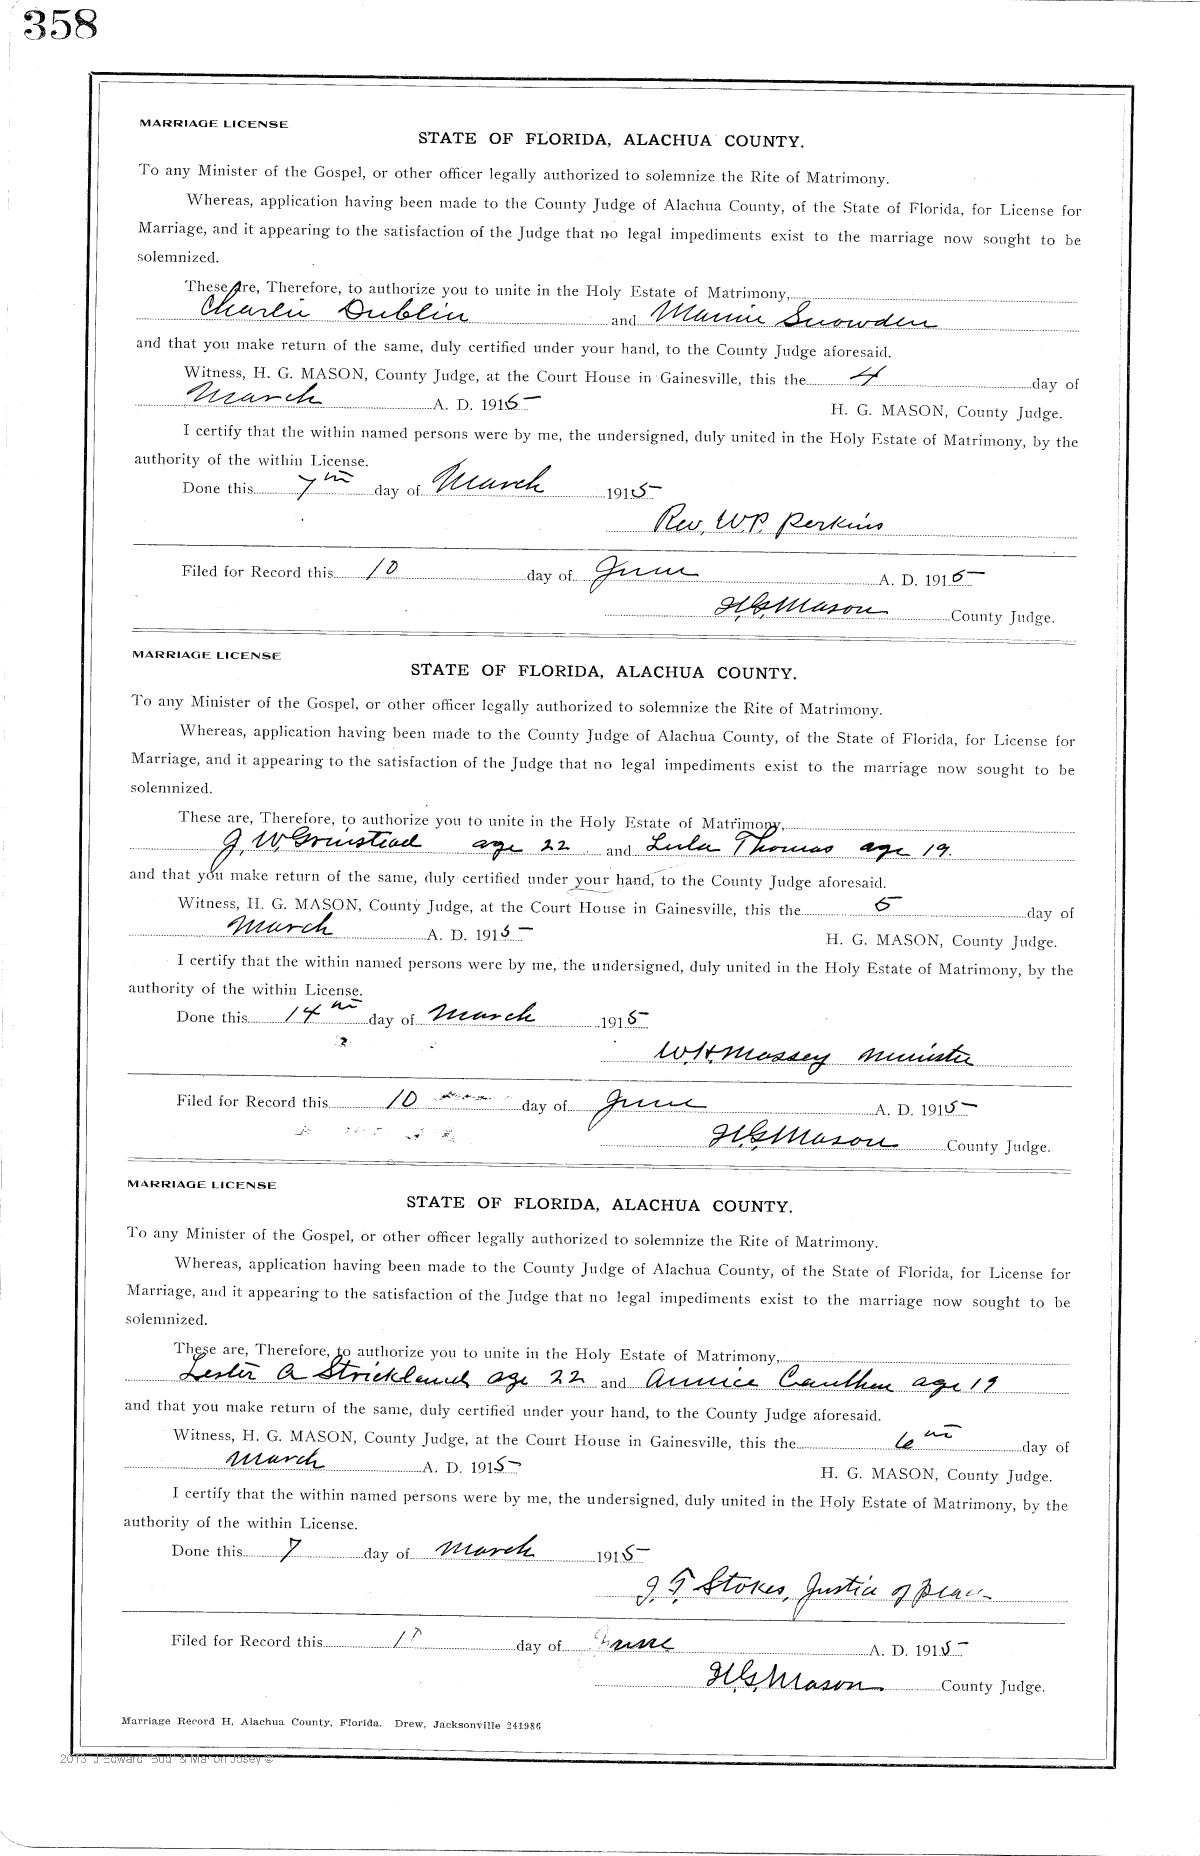 358
MARRIAGE LICENSE
STATE OF FLORIDA, ALACHUA COUNTY.
To any Minister of the Gospel, or other officer legally authorized to solemnize the Rite of Matrimony.
Whereas, application having been made to the County Judge of Alachua County, of the State of Florida, for License for
Marriage, and it appearing to the satisfaction of the Judge that no legal impediments exist to the marriage now sought to be
solemnized.
These are, Therefore, to authorize you to unite in the Holy Estate of Matrimony,
Charlie Dublin and Mamie Snowden
and that you make return of the same, duly certified under your hand, to the County Judge aforesaid.
Witness, H. G. MASON, County Judge, at the Court House in Gainesville, this the 4 day of
March A. D. 1915 H. G. MASON, County Judge.
I certify that the within named persons were by me, the undersigned, duly united in the Holy Estate of Matrimony, by the
authority of the within License.
Done this 7th day of March 1915
Rev, W.P. Perkins
Filed for Record this 10 day of June A. D. 1915
H.G. Mason County Judge.
MARRIAGE LICENSE
STATE OF FLORIDA, ALACHUA COUNTY.
To any Minister of the Gospel, or other officer legally authorized to solemnize the Rite of Matrimony.
Whereas, application having been made to the County Judge of Alachua County, of the State of Florida, for License for
Marriage, and it appearing to the satisfaction of the Judge that no legal impediments exist to the marriage now sought to be
solemnized.
These are, Therefore, to authorize you to unite in the Holy Estate of Matrimony,
J. W. Grinstead age 22 and Lula Thomas age 19.
and that you make return of the same, duly certified under your hand, to the County Judge aforesaid.
Witness, H. G. MASON, County Judge, at the Court House in Gainesville, this the 5 day of
March A. D. 1915 H. G. MASON, County Judge.
I certify that the within named persons were by me, the undersigned, duly united in the Holy Estate of Matrimony, by the
authority of the within License.
Done this 14th day of March 1915
W. H. Massey Minister
Filed for Record this 10 day of June A. D. 1915
H.G. Mason County Judge.
MARRIAGE LICENSE
STATE OF FLORIDA, ALACHUA COUNTY.
To any Minister of the Gospel, or other officer legally authorized to solemnize the Rite of Matrimony.
Whereas, application having been made to the County Judge of Alachua County, of the State of Florida, for License for
Marriage, and it appearing to the satisfaction of the Judge that no legal impediments exist to the marriage now sought to be
solemnized.
These are, Therefore, to authorize you to unite in the Holy Estate of Matrimony,
Lester A Strickland age 22 and Annice Cauthen age 19
and that you make return of the same, duly certified under your hand, to the County Judge aforesaid.
Witness, H. G. MASON, County Judge, at the Court House in Gainesville, this the 6th day of
March A. D. 1915 H. G. MASON, County Judge.
I certify that the within named persons were by me, the undersigned, duly united in the Holy Estate of Matrimony, by the
authority of the within License.
Done this 7 day of March 1915
J. T. Stokes, Justice of Peace
Filed for Record this day of June A. D. 1915
H.G. Mason County Judge.
Marriage Record H, Alachua County, Florida. Drew, Jacksonville 241986
2013 J Edward "Bud" & Marion Josey ©